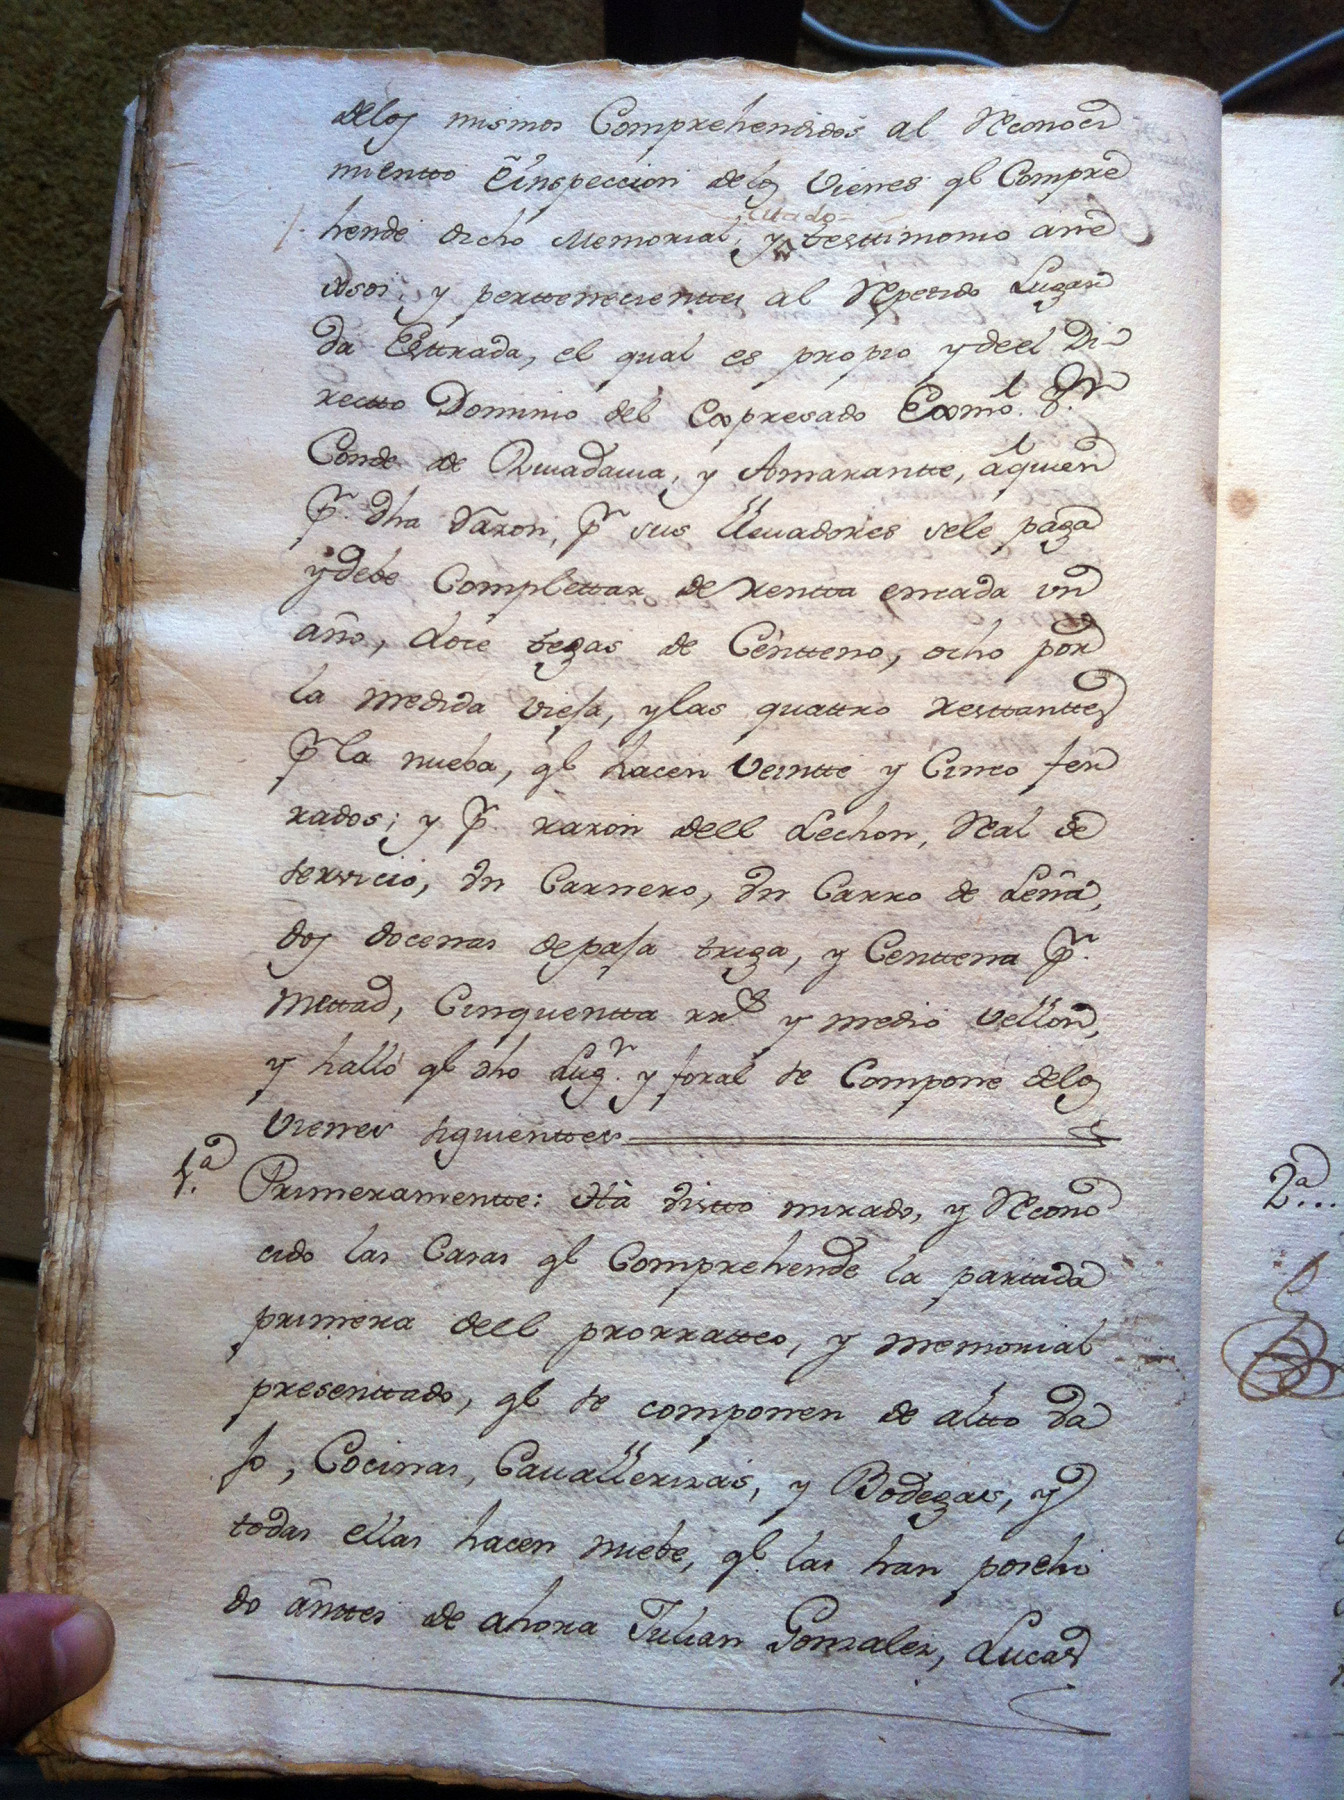 delos mismos Comprehendidos al Reconoci
mientto è inspeccion delos Vienes ql Compre
hende dicho Memorial, y testtimonio anne
citado
dsos, y perttenecienttes al Repetido Lugar
da Esttrada, el qual es propio y de el Di-
rectto Dominio del Expresado Exmo. Sr.
Conde de Rivadavia, y Amarantte, à quien
pr. dha Raron, pr. sus llevadores sele paga
y debe Complettar de rentta encada un
año, doce tegas de Centteno, ocho por
la medida viefa, y las quattro resttanttes
pr. la nueba, ql hacen Veintte y Cinco fer
rados; y pr. raron dell Lechon, Real de
servicio, Un Carnero, Un Carro de Leña,
dos docenas depafa triga, y Centtena pr.
mettad, Cinquentta rrs. y medio vellon,
y halló ql dho Lugr. y foral se Compone delos
Vienes siguienttes
1.ª Primeramentte: Hà Vistto mirado, y Recono
cido las Casas ql Comprehende la partida
primera dell prorratteo, y memorial
presenttado, ql se componen de altto Ba
fo, Cocinas, Cavallerizas, y Bodegas, y
todas ellas hacen nuebe, ql las han posehi
do anttes de ahora Julian Gonzalez, Lucas
2ª...